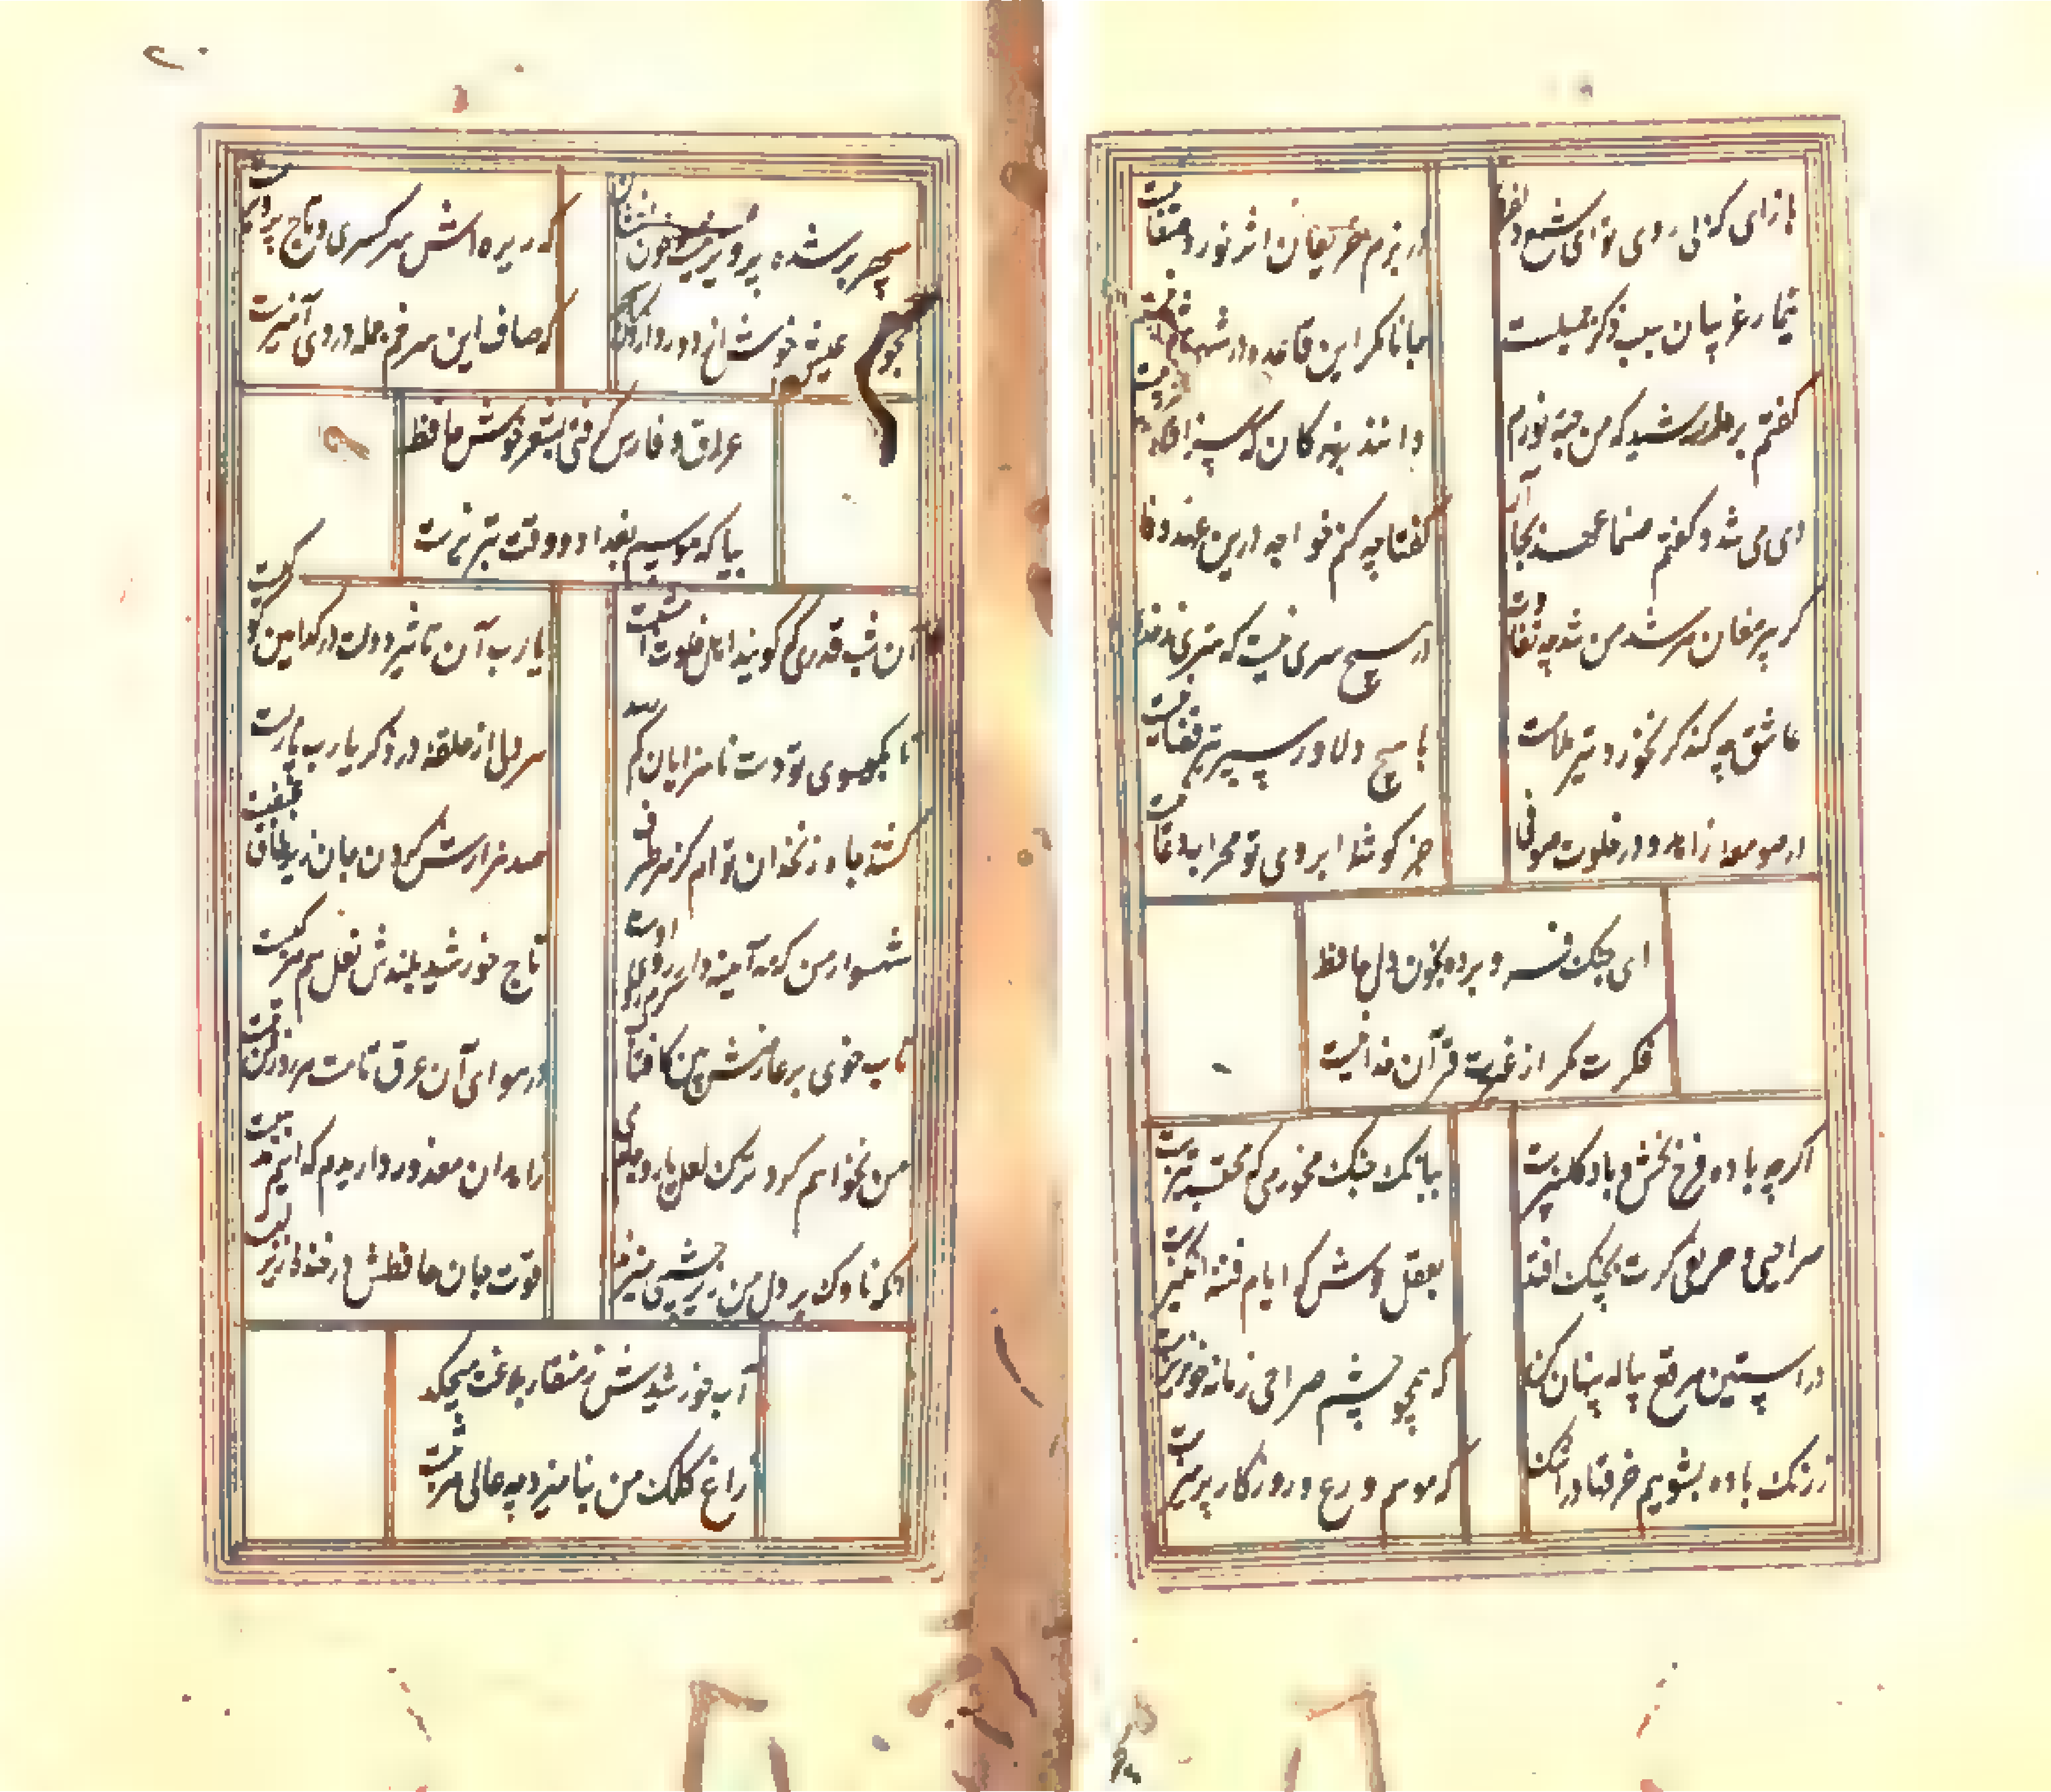 باز ای که بی روی تو ای شمع دل افروز
در بزم حریفان اثر نور و صفا نیست
تیمار غریبان سبب ذکر جمیلست
جانا مکر این قاعده در شهر شما نیست
گفتم
دانند بزرگان که سزاوار
دی می شد و گفتم صنما عهد بجا آر
گفتا چه کنم خواجه درین عهد وفا
گر پیر مغان مرشد من شد چه تفاوت
در هیچ سری نیست که سری ز خدا
عاشق چه کند گر نخورد تیر ملامت
با هیچ دلاور سپر تیر قضا نیست
در صومعه زاهد و در خلوت صوفی
جز گوشه ابروی تو محراب دعا نیست
ای چنک فرو برده بخون دل حافظ
فکرت مکر از غیرت قرآن خدا نیست
اگرچه باده فرح بخش و باد گلبیزست
ببانک چنک مخور می که محتسب تیزست
صراحی و حریفی گرت بچنک افتد
بعقل نوش که ایام فتنه انگیزست
در آستین مرقع پیاله پنهان کن
که همچو چشم صراحی زمانه خونریزست
ز رنک باده بشوییم خرقها در اشک
که موسم ورع و روزگار پرهیزست
سپهر بر شده پرویزنیست خون افشان
که ریزه اش سر کسری و تاج پرویزست
مجوی عیش خوش از دور
که صاف این سر خم جمله دردی آمیزست
عراق و فارس گرفتی بشعر خوش حافظ
بیا که موسم بغداد و وقت تبریزست
آن شب قدری که گویند اهل خلوت امشبست
یا رب آن تاثیر دولت در کدامین کوکبست
تا بگیسوی تو دست ناسزایان کم رسد
هر دلی از حلقه در ذکر یا رب یا ربست
کشته چاه زنخدان توام کز هر طرف
صد هزارش گردن جان زیر طوق غبغبست
شهسوار من که مه آینه دار روی اوست
تاج خورشید بلندش نعل سم مرکبست
تاب خوی بر عارضش بین کافتاب گرم رو
در هوای آن عرق تا هست هر روزش تبست
من نخواهم کرد ترک لعل یار و جام می
زاهدان معذور داریدم که اینم مذهبست
آنکه ناوک بر دل من زیر چشمی میزند
قوت جان حافظش در خنده زیر لبست
آب خورشیدش ز منقار بلاغت میچکد
زاغ کلک من بنامیزد چه عالی مشربست